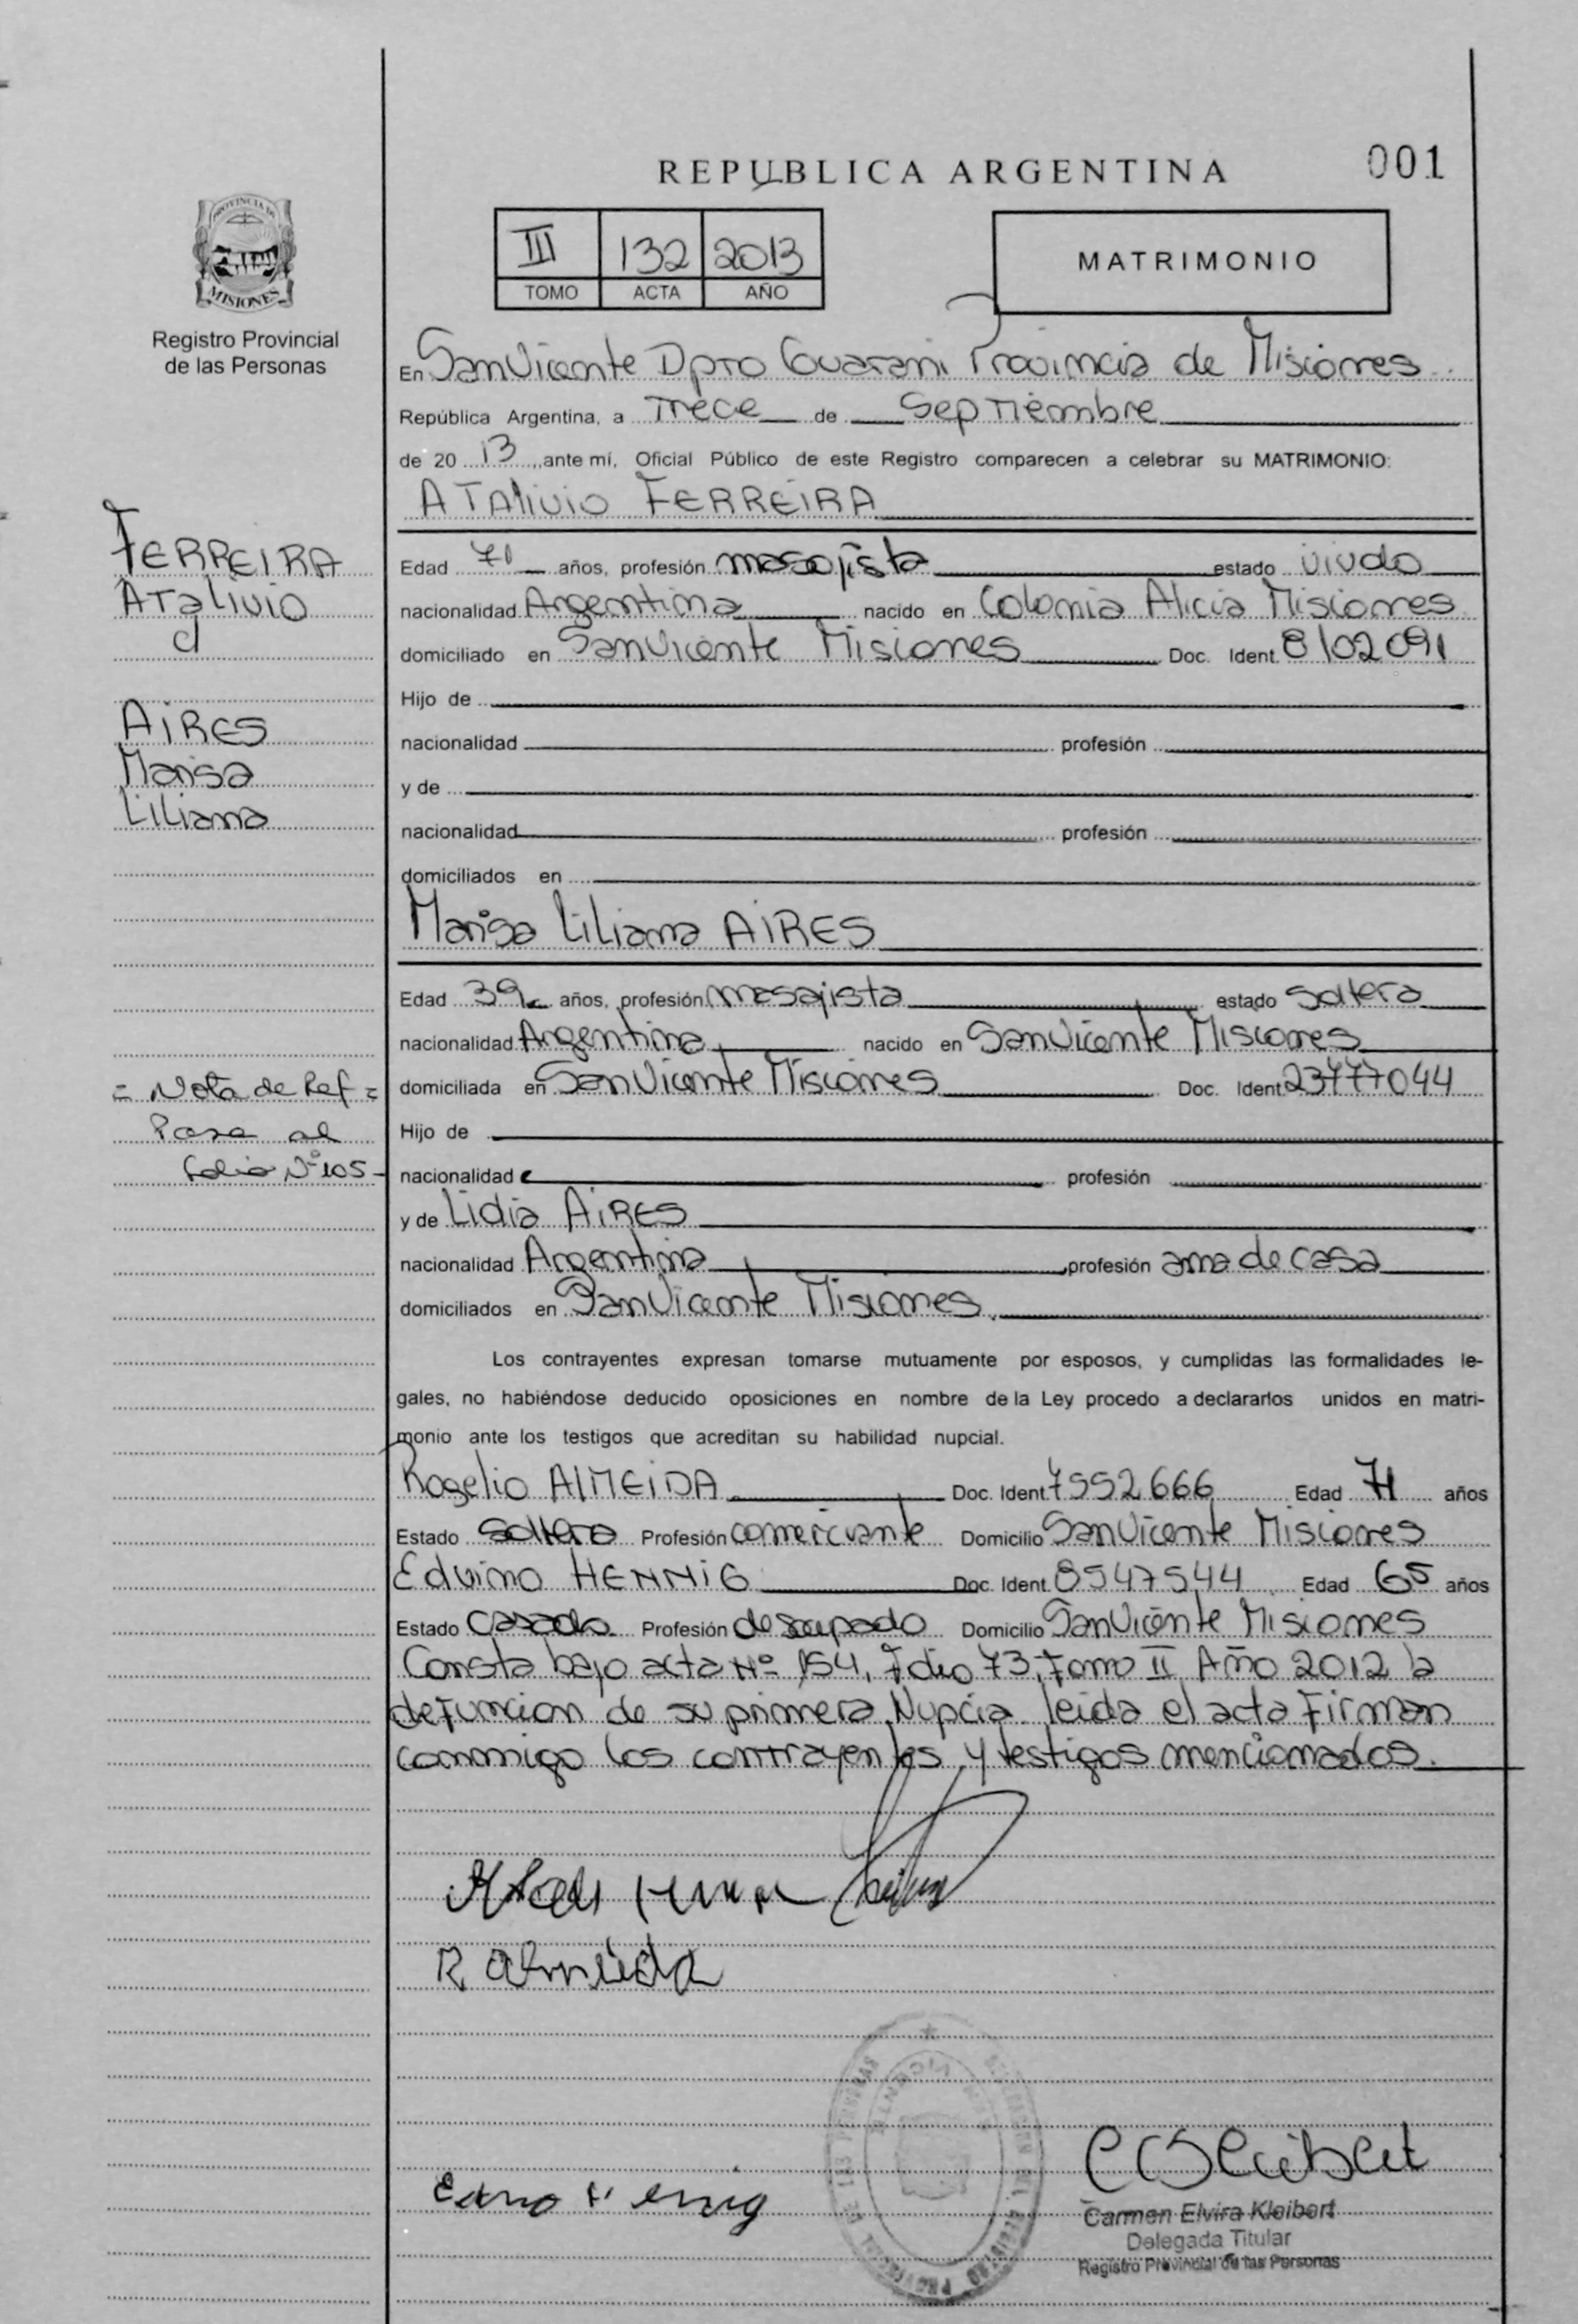 REPUBLICA ARGENTINA
001
PROVINCIA DE
MISIONES
Registro Provincial
de las Personas
III 132 2013
TOMO ACTA AÑO
MATRIMONIO
En San Vicente Dpto Guarani Provincia de Misiones
República Argentina, a Trece de Septiembre
de 20 13 ante mí, Oficial Público de este Registro comparecen a celebrar su MATRIMONIO:
ATAliviO FERREiRA
FERREIRA
ATAlivio
Edad 71 años, profesión masajista estado viudo
nacionalidad Argentina nacido en Colonia Alicia Misiones
domiciliado en San Vicente Misiones Doc. Ident. 8102091
Hijo de
nacionalidad profesión
y de
nacionalidad profesión
domiciliados en
AiRES
Marisa
Liliana
Marisa Liliana AiRES
Edad 39 años, profesión masajista estado Soltera
nacionalidad Argentina nacido en San Vicente Misiones
domiciliada en San Vicente Misiones Doc. Ident. 23777044
= Nota de Ref =
Pasa al
folio Nº 105-
Hijo de
nacionalidad profesión
y de Lidia AiRES
nacionalidad Argentina profesión ama de casa
domiciliados en San Vicente Misiones
Los contrayentes expresan tomarse mutuamente por esposos, y cumplidas las formalidades le-
gales, no habiéndose deducido oposiciones en nombre de la Ley procedo a declararlos unidos en matri-
monio ante los testigos que acreditan su habilidad nupcial.
Rogelio AlMEiDA Doc. Ident. 7552666 Edad 71 años
Estado Soltero Profesión comerciante Domicilio San Vicente Misiones
Edvino HENNiG Doc. Ident. 8547544 Edad 65 años
Estado Casado Profesión desocupado Domicilio San Vicente Misiones
Consta bajo acta Nº 154, Folio 73, Tomo II Año 2012 la
defuncion de su primera Nupcia leida el acta Firman
conmigo los contrayentes y testigos mencionados.
R Almeida
Carmen Elvira Kleibert
Delegada Titular
Registro Provincial de las Personas